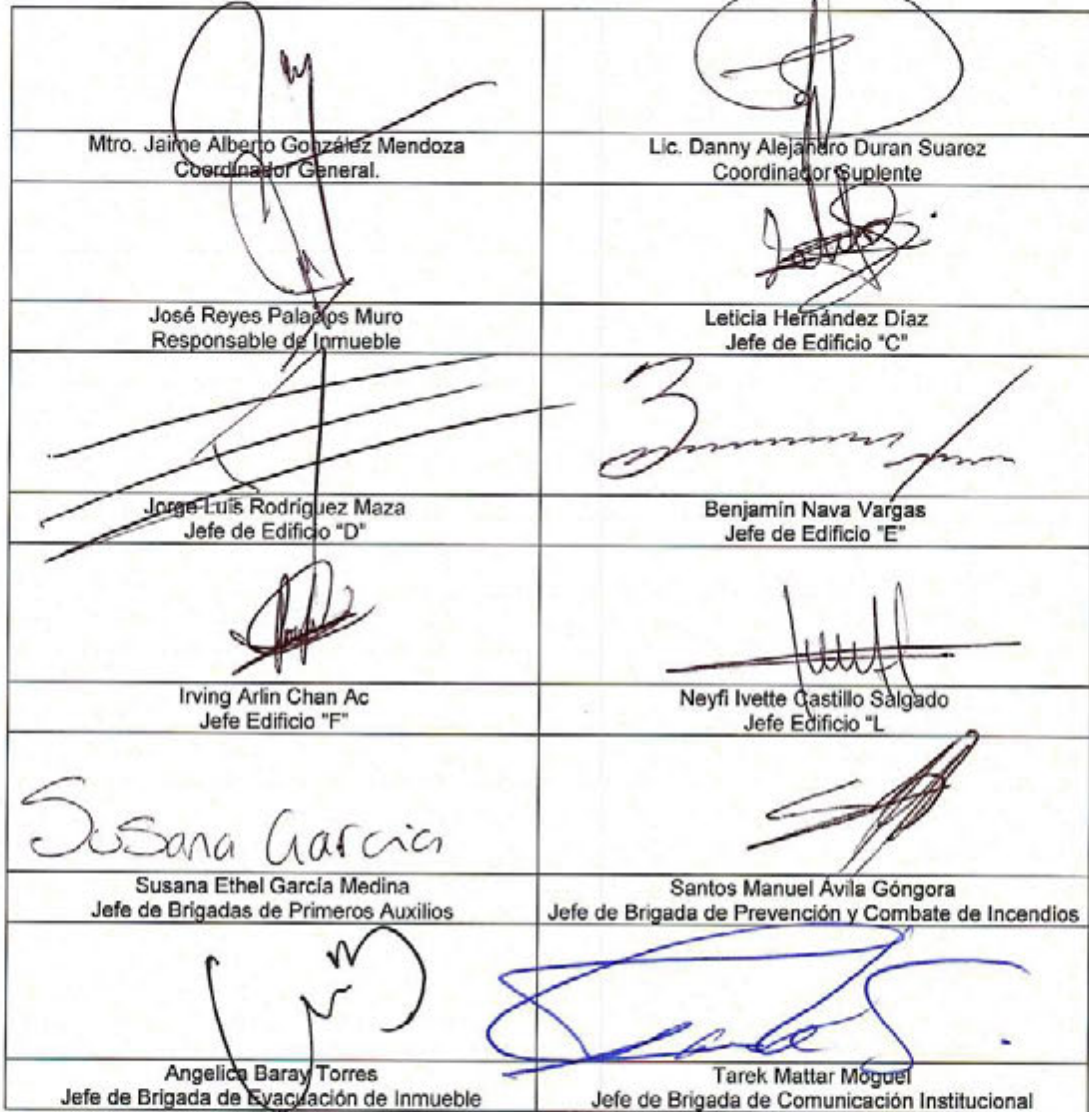 Mtro. Jaime Alberto González Mendoza
Coordinador General.
Lic. Danny Alejandro Duran Suarez
Coordinador Suplente
José Reyes Palacios Muro
Responsable de Inmueble
Leticia Hernández Díaz
Jefe de Edificio "C"
Jorge Luis Rodríguez Maza
Jefe de Edificio "D"
Benjamín Nava Vargas
Jefe de Edificio "E"
Irving Arlin Chan Ac
Jefe Edificio "F"
Neyfi Ivette Castillo Salgado
Jefe Edificio "L
Susana García
Susana Ethel García Medina
Jefe de Brigadas de Primeros Auxilios
Santos Manuel Ávila Góngora
Jefe de Brigada de Prevención y Combate de Incendios
Angelica Baray Torres
Jefe de Brigada de Evacuación de Inmueble
Tarek Mattar Moguel
Jefe de Brigada de Comunicación Institucional